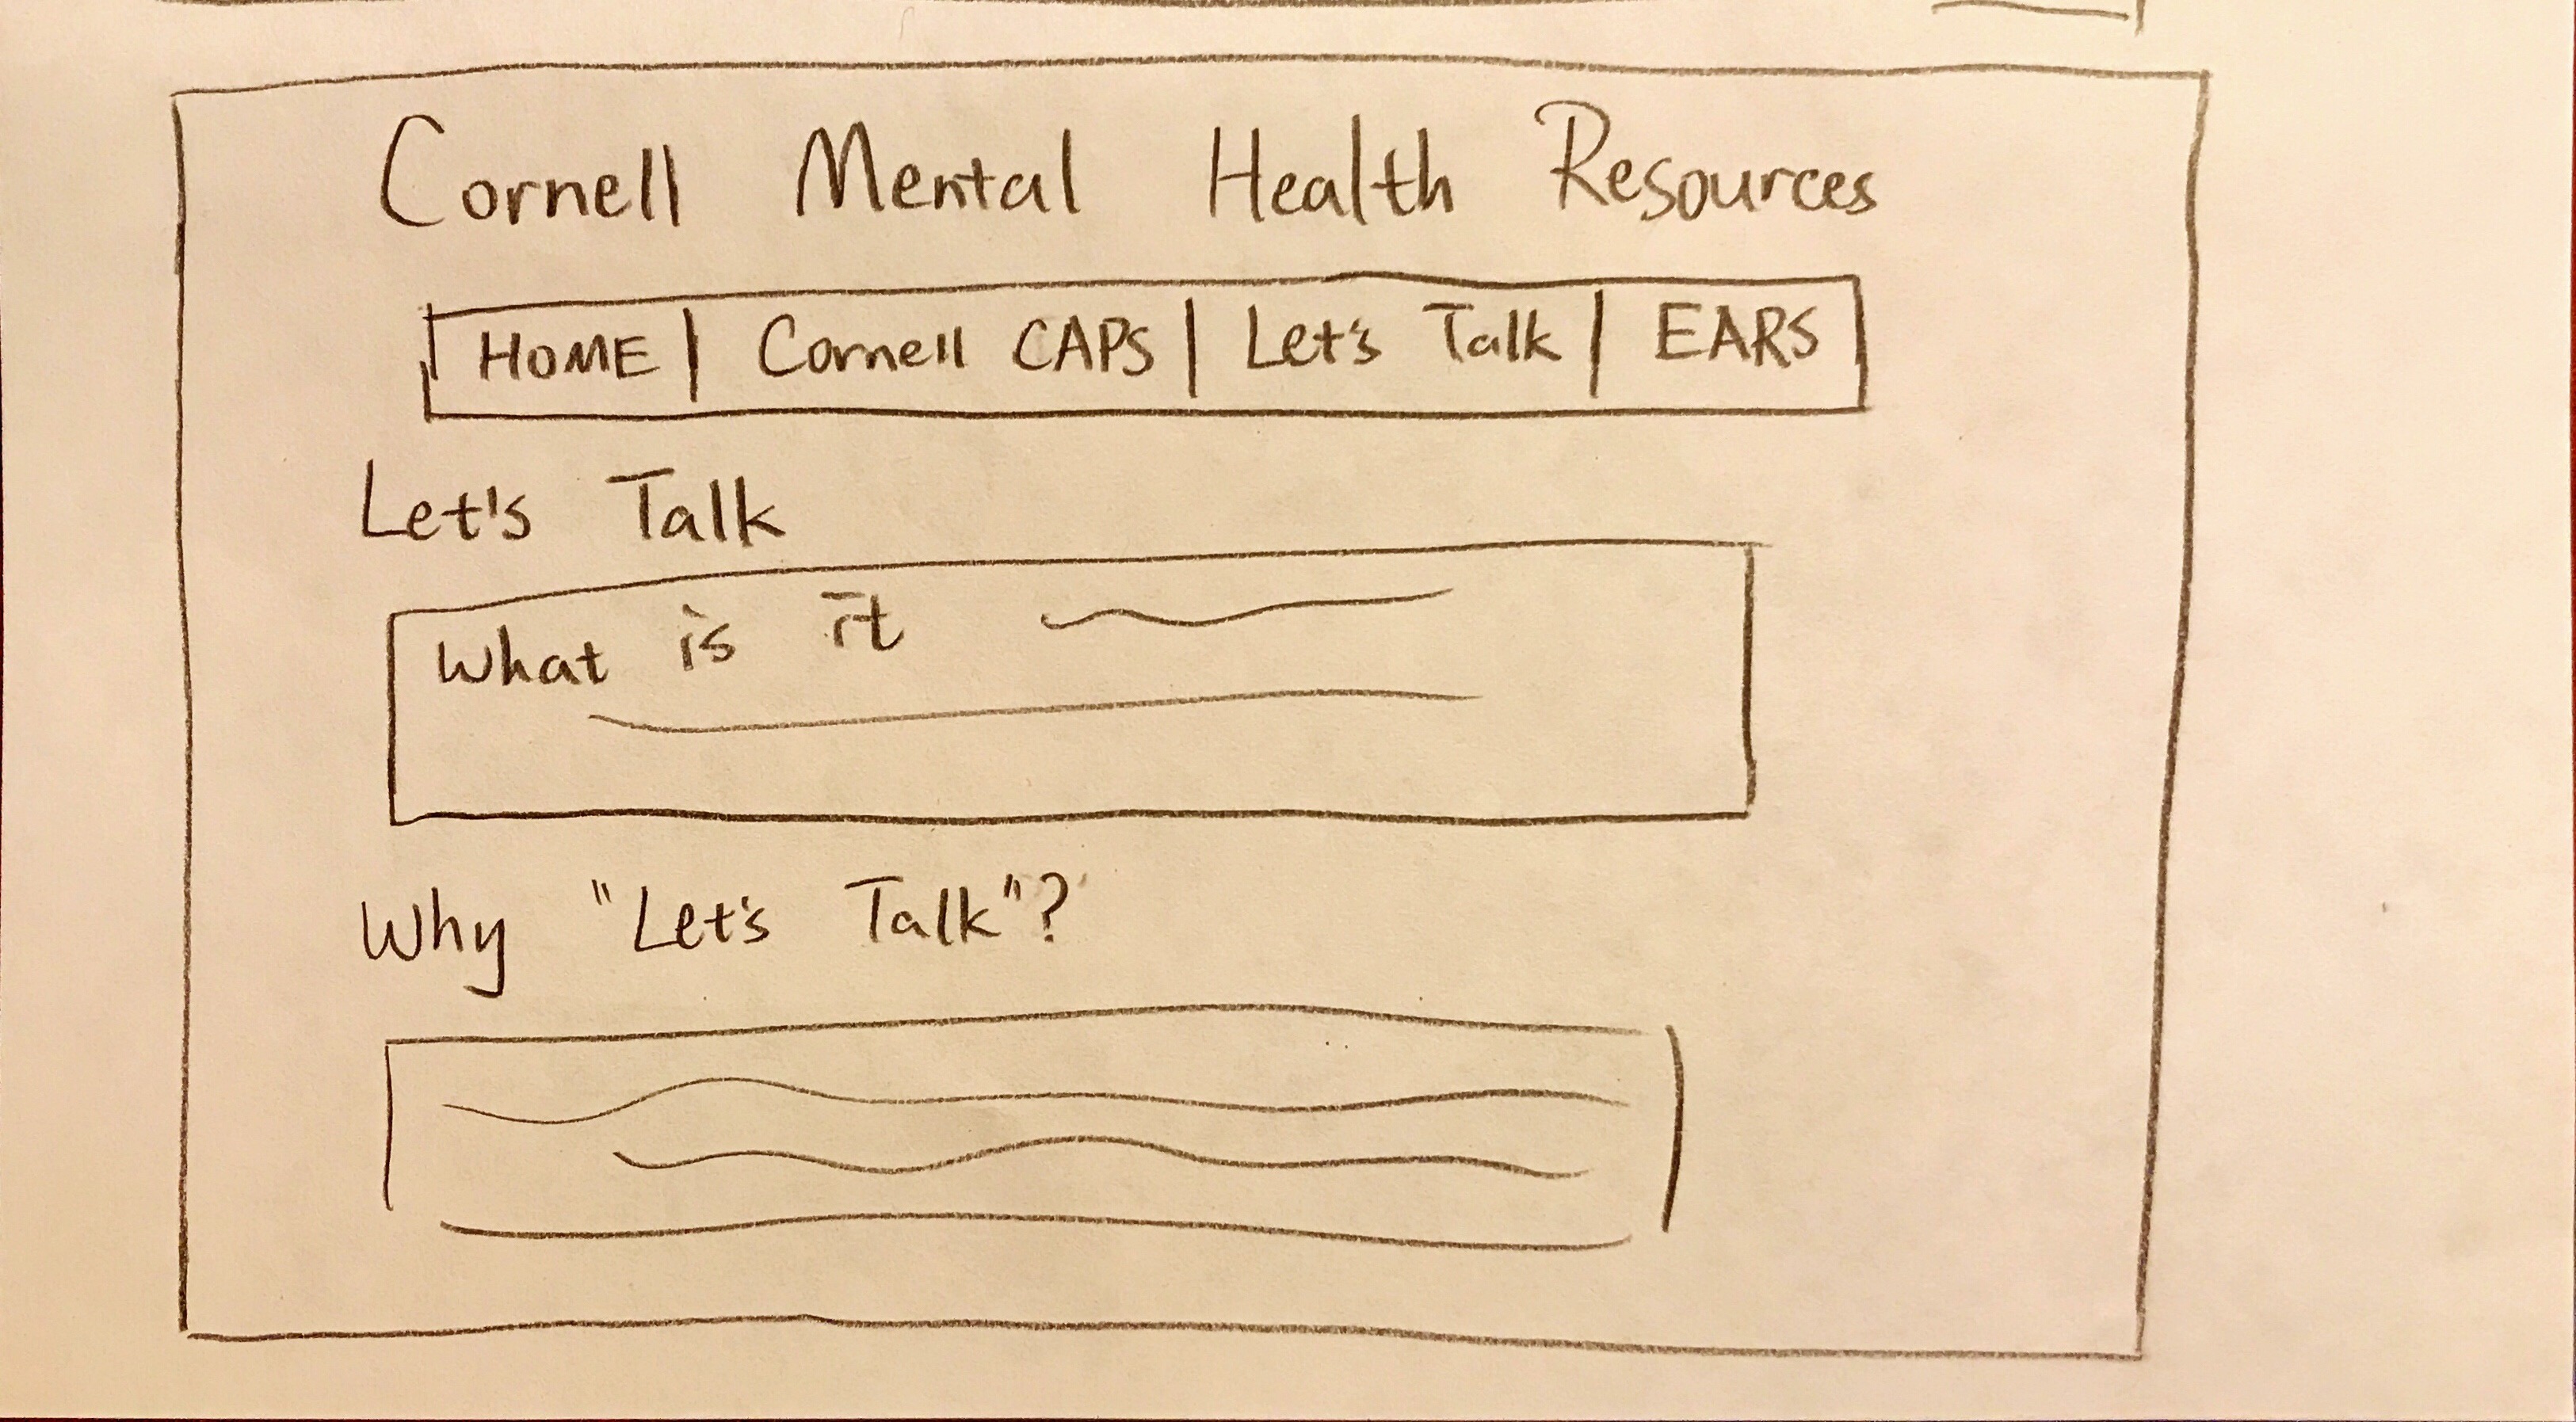 Cornell Mental Health Resources
HOME | Cornell CAPS | Let's Talk | EARS
Let's Talk
What is it
Why "Let's Talk"?